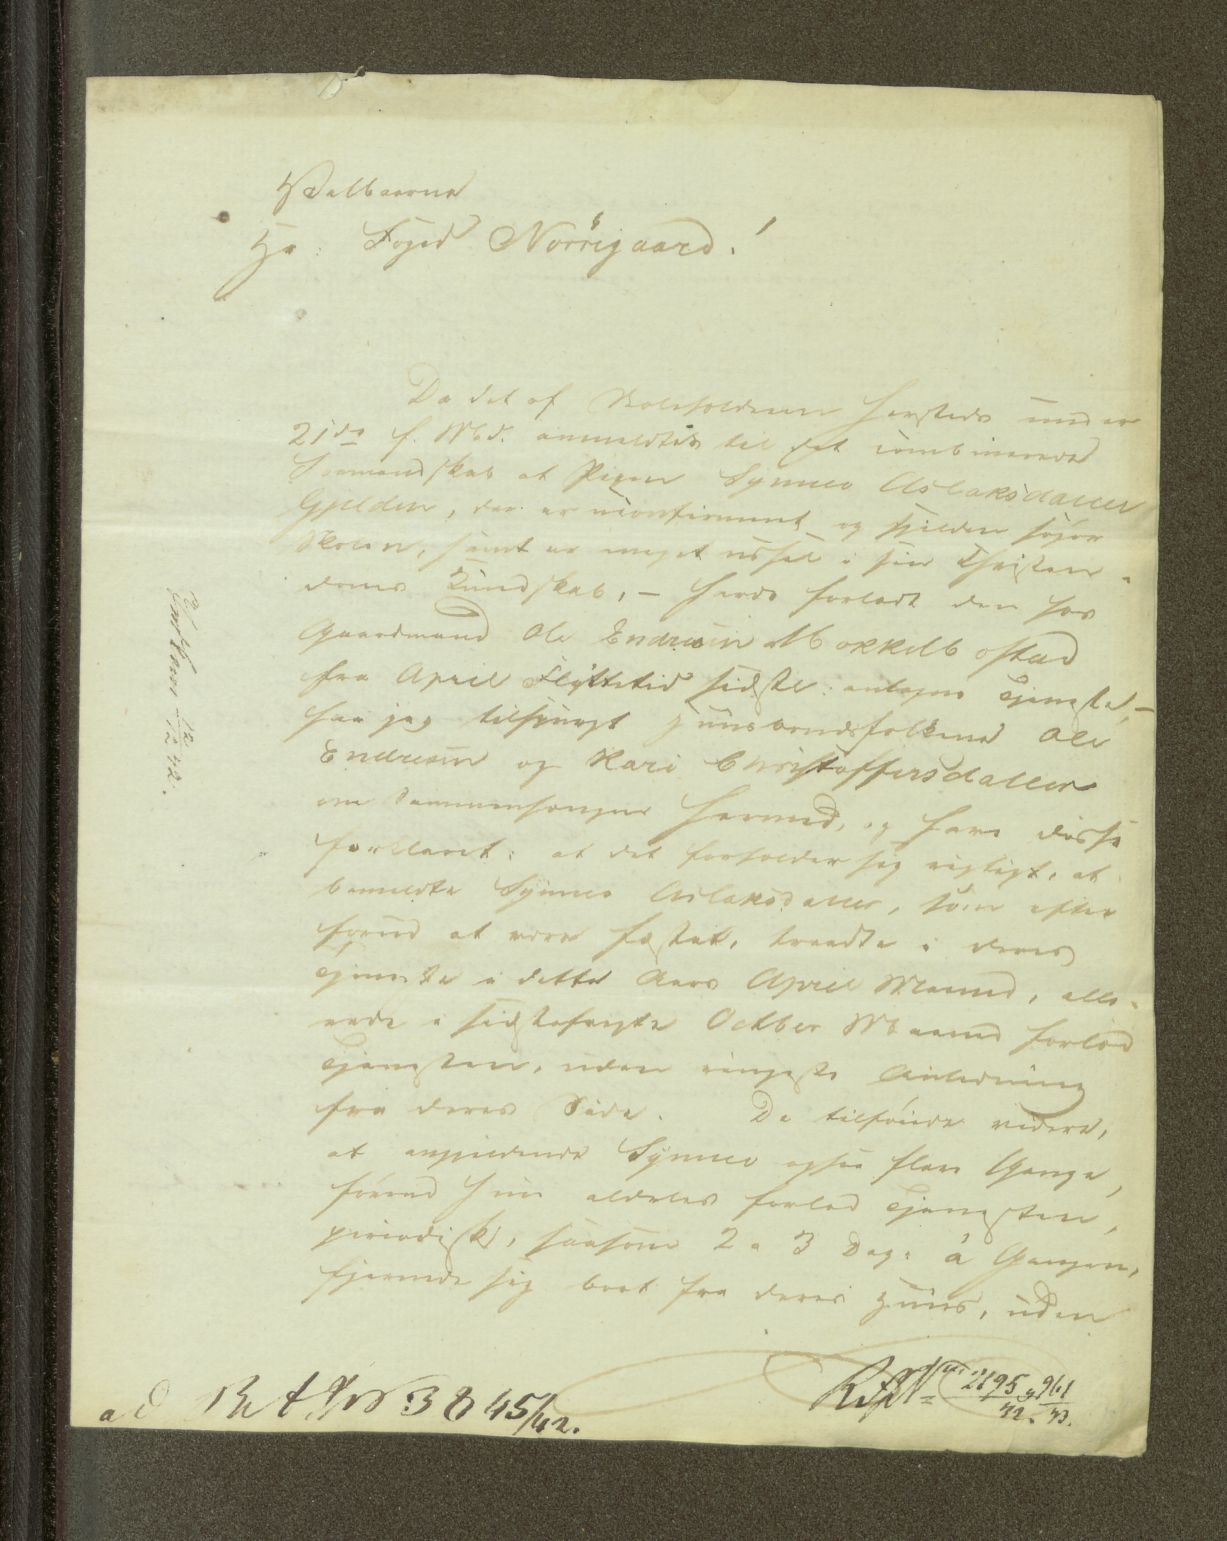 Velbaarne
Hr: Foged Nørregaard!
Da det af Skoleholderen hersteds under
21de f. Md. anmeldtes til det combinerede
Formandskab at Pigen Synnev Aslaksdatter
Gjelden, der er uconfirmeret og sjelden søger
Skolen, samt er meget ussel i sin Christen-
doms Kundskab, – havde forladt den hos
Gaardmand Ole Endresen Mokkelbostad
fra April Flyttetid sidstl: antagne Tjeneste, –
har jeg tilspurgt Huusbondsfolkene Ole
Endresen og Kari Christoffersdatter
om Sammenhængen hermed, og have disse
forklaret: at det forholder sig rigtigt, at
bemeldte Synnev Aslaksdatter, som efter
forud at være fæstet, traadte i deres
Tjeneste i dette Aars April Maaned, alle-
rede i sidstafvigte Octber Maaned forlod
Tjenesten, uden ringeste Anledning
fra deres Side. De tilføiede videre,
at angjeldende Synnev ogsaa flere Gange,
førend hun aldeles forlod Tjenesten,
periodisk, saasom 2 a 3 Dage á Gangen,
fjernede sig bort fra deres Huus, uden
ad 3845/42.
2195/42. 961/43.
12/12 42.